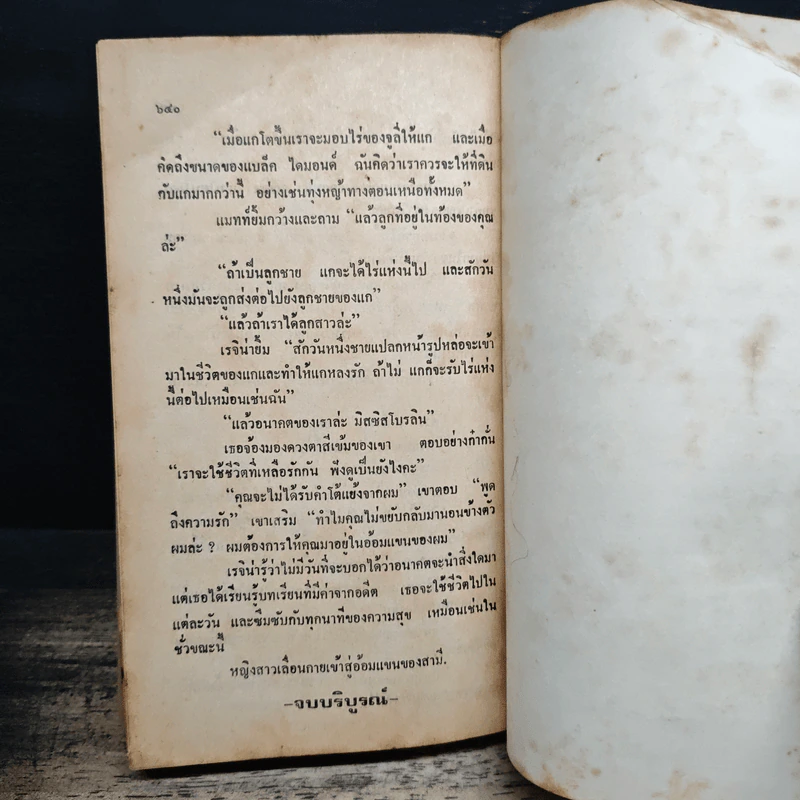 ๖๔๐
“เมื่อแกโตขึ้นเราจะมอบไร่ของจูลี่ให้แก และเมื่อ
คิดถึงขนาดของแบล็ค ไดมอนด์ ฉันคิดว่าเราควรจะให้ที่ดิน
กับแกมากกว่านี้ อย่างเช่นทุ่งหญ้าทางตอนเหนือทั้งหมด”
แมทท์ยิ้มกว้างและถาม “แล้วลูกที่อยู่ในท้องของคุณ
ล่ะ”
“ถ้าเป็นลูกชาย แกจะได้ไร่แห่งนี้ไป และสักวัน
หนึ่งมันจะถูกส่งต่อไปยังลูกชายของแก”
“แล้วถ้าเราได้ลูกสาวล่ะ”
เรจิน่ายิ้ม “สักวันหนึ่งชายแปลกหน้ารูปหล่อจะเข้า
มาในชีวิตของแกและทำให้แกหลงรัก ถ้าไม่ แกก็จะรับไร่แห่ง
นี้ต่อไปเหมือนเช่นฉัน”
“แล้วอนาคตของเราล่ะ มิสซิสโบรลิน”
เธอจ้องมองดวงตาสีเข้มของเขา ตอบอย่างก๋ากั่น
“เราจะใช้ชีวิตที่เหลือรักกัน ฟังดูเป็นยังไงคะ”
“คุณจะไม่ได้รับคำโต้แย้งจากผม” เขาตอบ “พูด
ถึงความรัก” เขาเสริม “ทำไมคุณไม่ขยับกลับมานอนข้างตัว
ผมล่ะ ? ผมต้องการให้คุณมาอยู่ในอ้อมแขนของผม”
เรจิน่ารู้ว่าไม่มีวันที่จะบอกได้ว่าอนาคตจะนำสิ่งใดมา
แต่เธอได้เรียนรู้บทเรียนที่มีค่าจากอดีต เธอจะใช้ชีวิตไปใน
แต่ละวัน และซึมซับกับทุกนาทีของความสุข เหมือนเช่นใน
ชั่วขณะนี้
หญิงสาวเลื่อนกายเข้าสู่อ้อมแขนของสามี.
-จบบริบูรณ์-